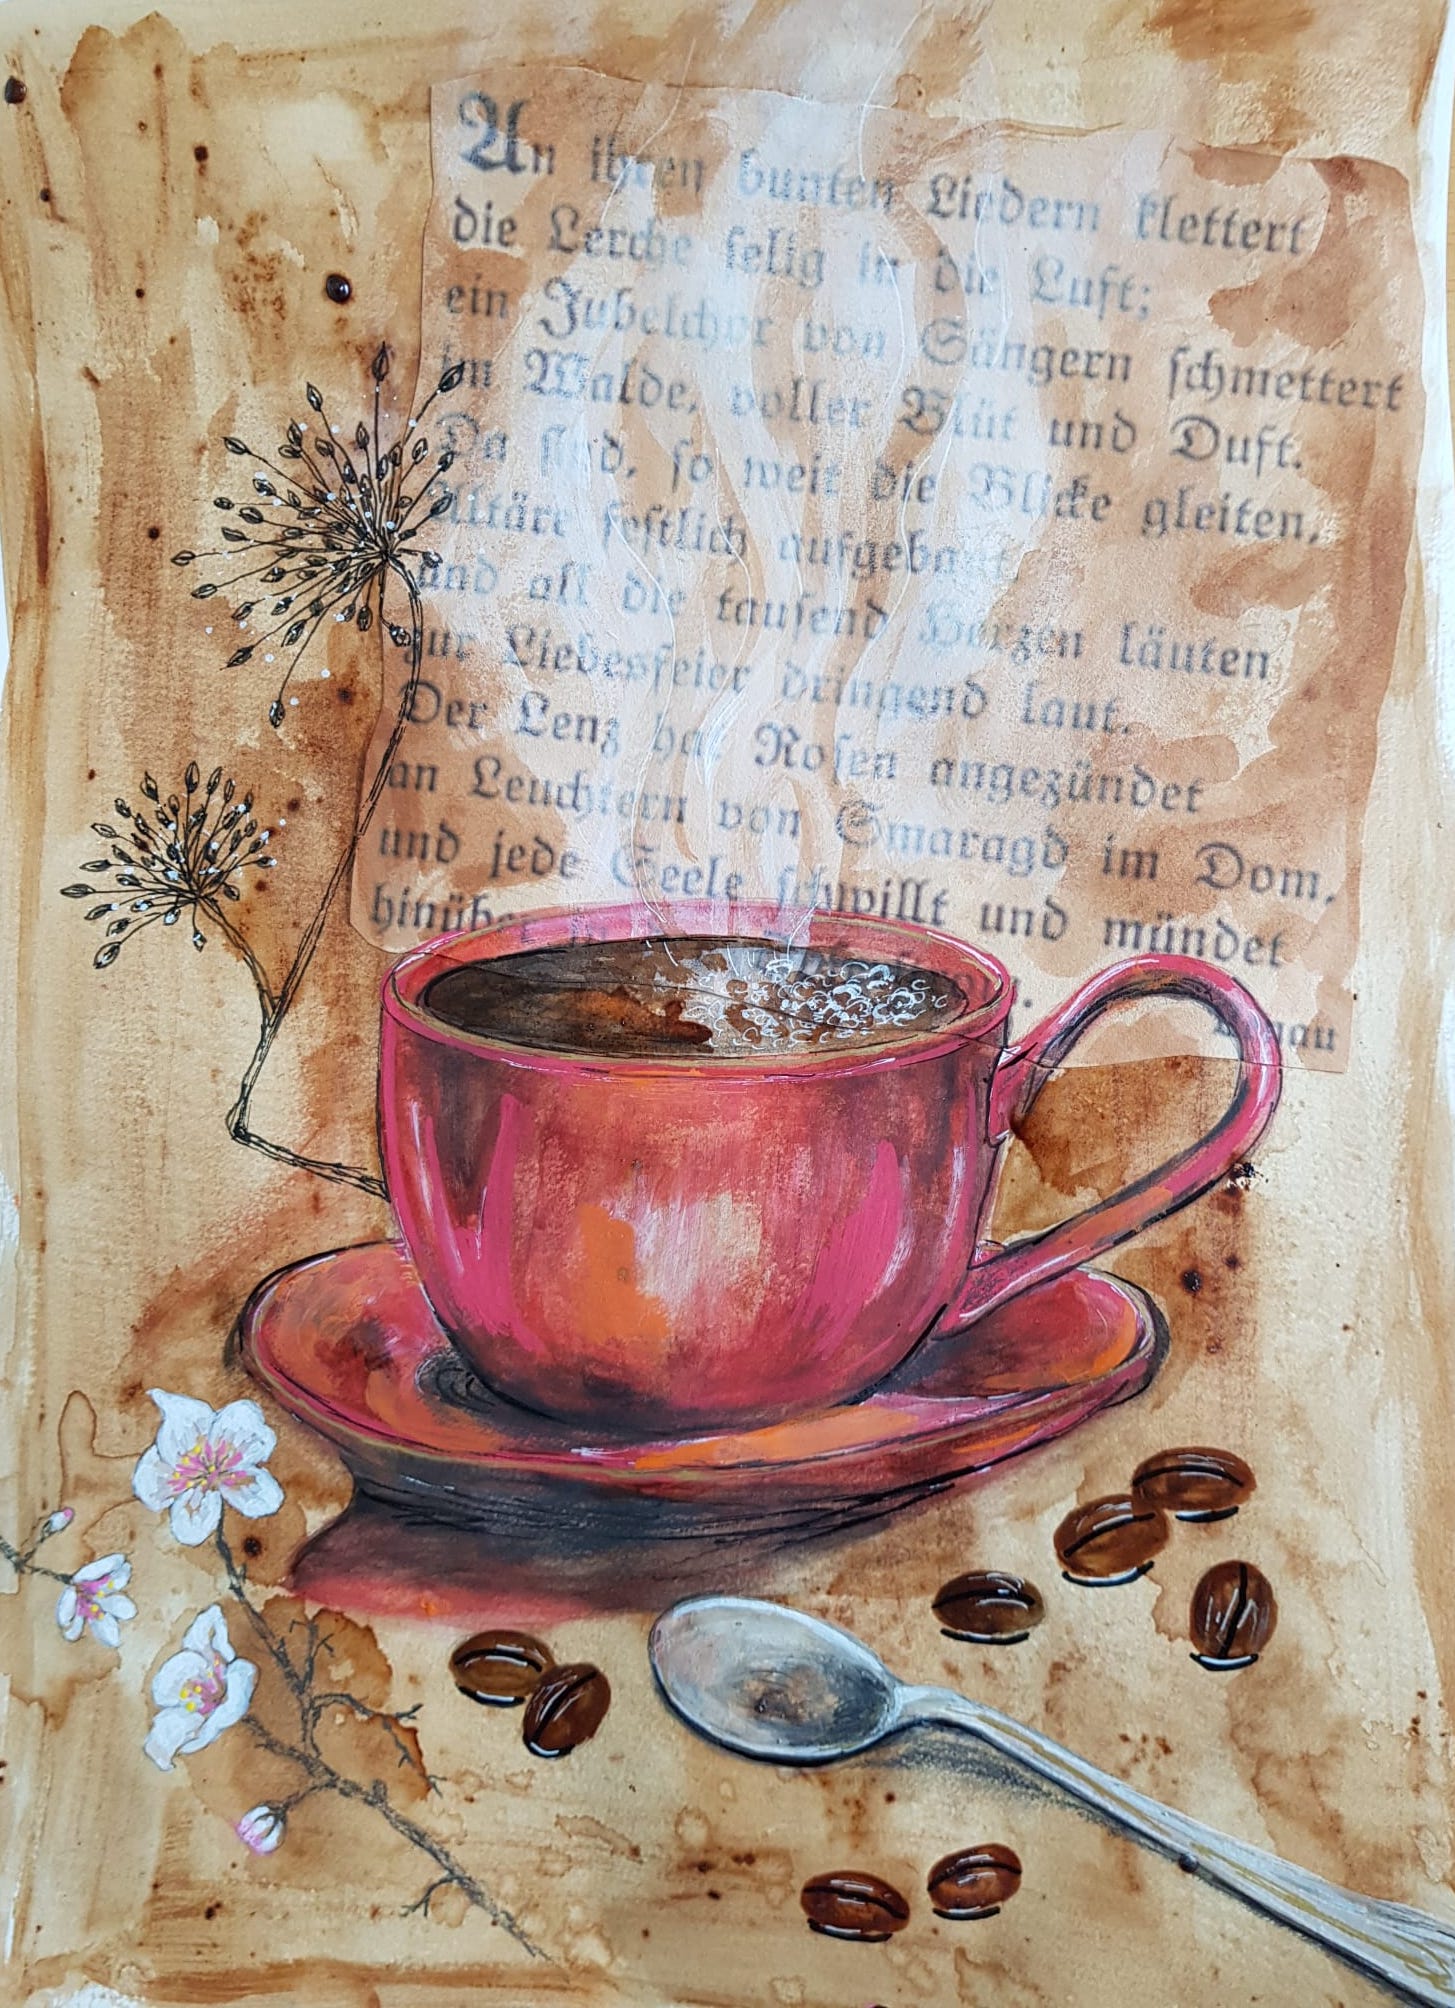 An ihren bunten Liedern klettert
die Lerche selig in die Luft;
ein Jubelchor von Sängern schmettert
im Walde, voller Blüt und Duft.
Da sind, so weit die Blicke gleiten,
Altäre festlich aufgebaut,
und all die tausend Herzen läuten
zur Liebesfeier dringend laut.
Der Lenz hat Rosen angezündet
an Leuchtern von Smaragd im Dom,
und jede Seele schwillt und mündet
hinüber
Lenau